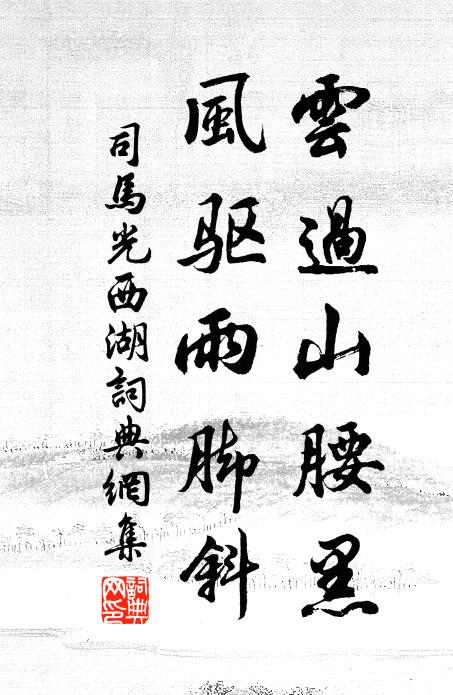 雲過山腰黑
風驱雨脚斜
司馬光西湖詞典網集
詞典
网印